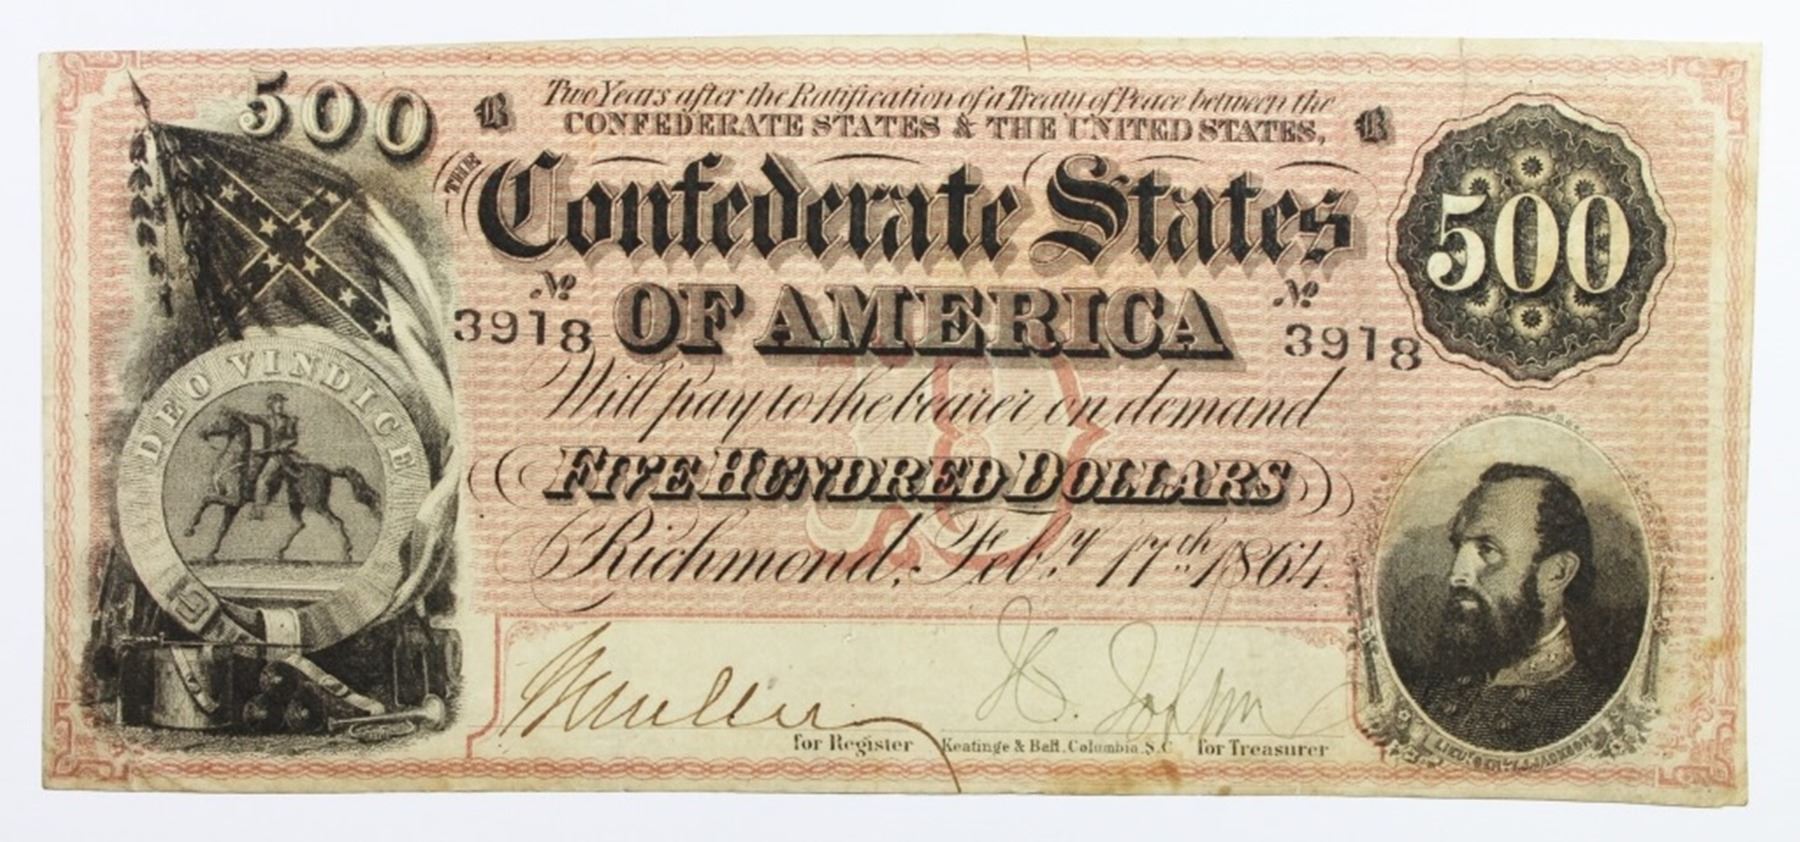 500
B Two Years after the Ratification of a Treaty of Peace between the B
CONFEDERATE STATES & THE UNITED STATES,
THE Confederate States
500
No No
3918 OF AMERICA 3918
Will pay to the bearer on demand
FIVE HUNDRED DOLLARS
Richmond, Feby. 17th 1864.
DEO VINDICE
for Register Keatinge & Ball, Columbia, S.C. for Treasurer
LIEUT. GENL. T.J. JACKSON